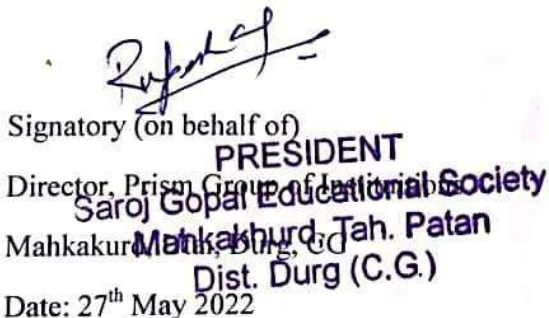 Signatory (on behalf of)
PRESIDENT
Director, Prism Group of Institutions
Saroj Gopal Educational Society
Mahkakurd
Mahkakhurd, Tah. Patan
Durg, CG
Dist. Durg (C.G.)
Date: 27th May 2022